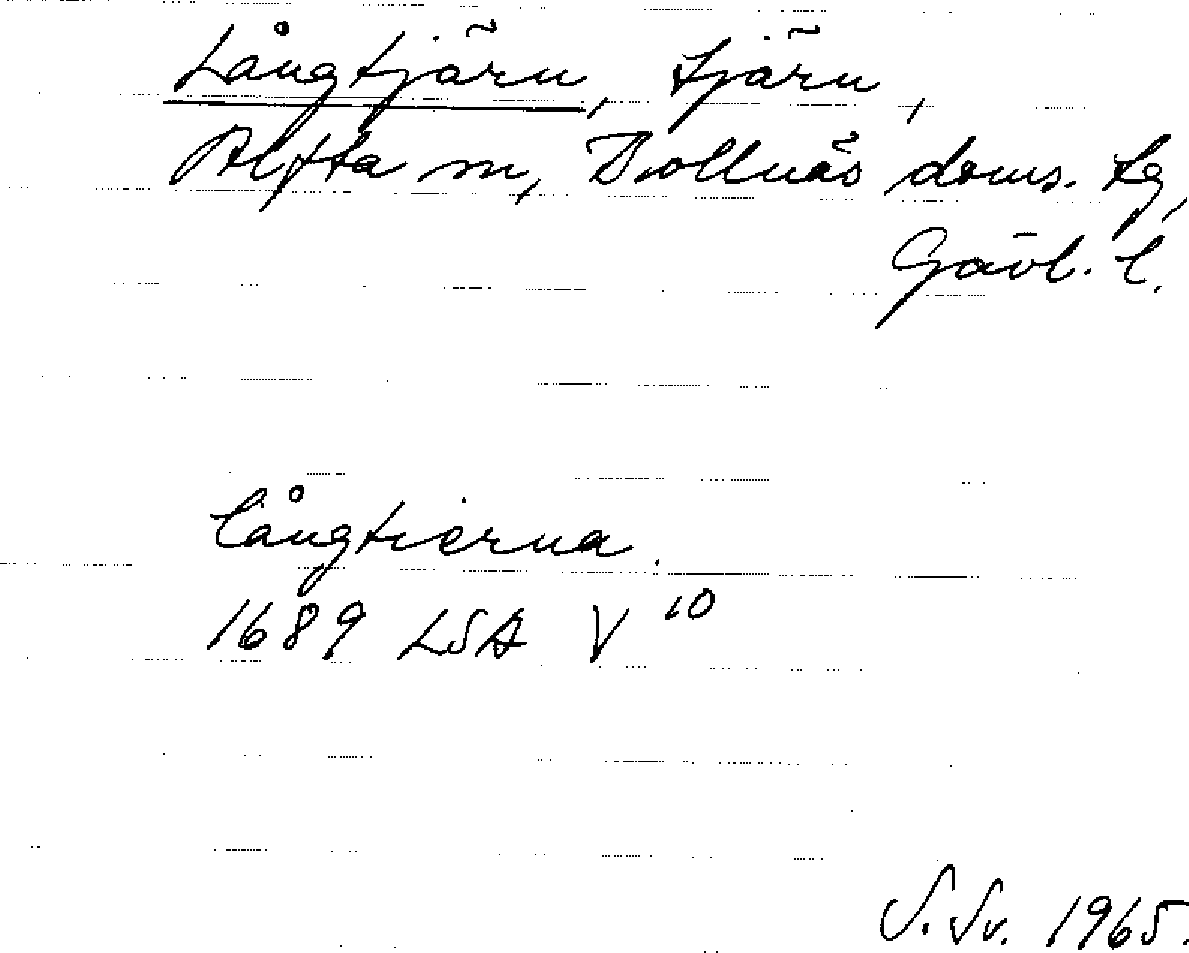 Långtjärn, tjärn,
Alfta sn, Bollnäs doms. tg,
Gävl. l.
Långtierna.
1689 LSA V 10
S. Sv. 1965.